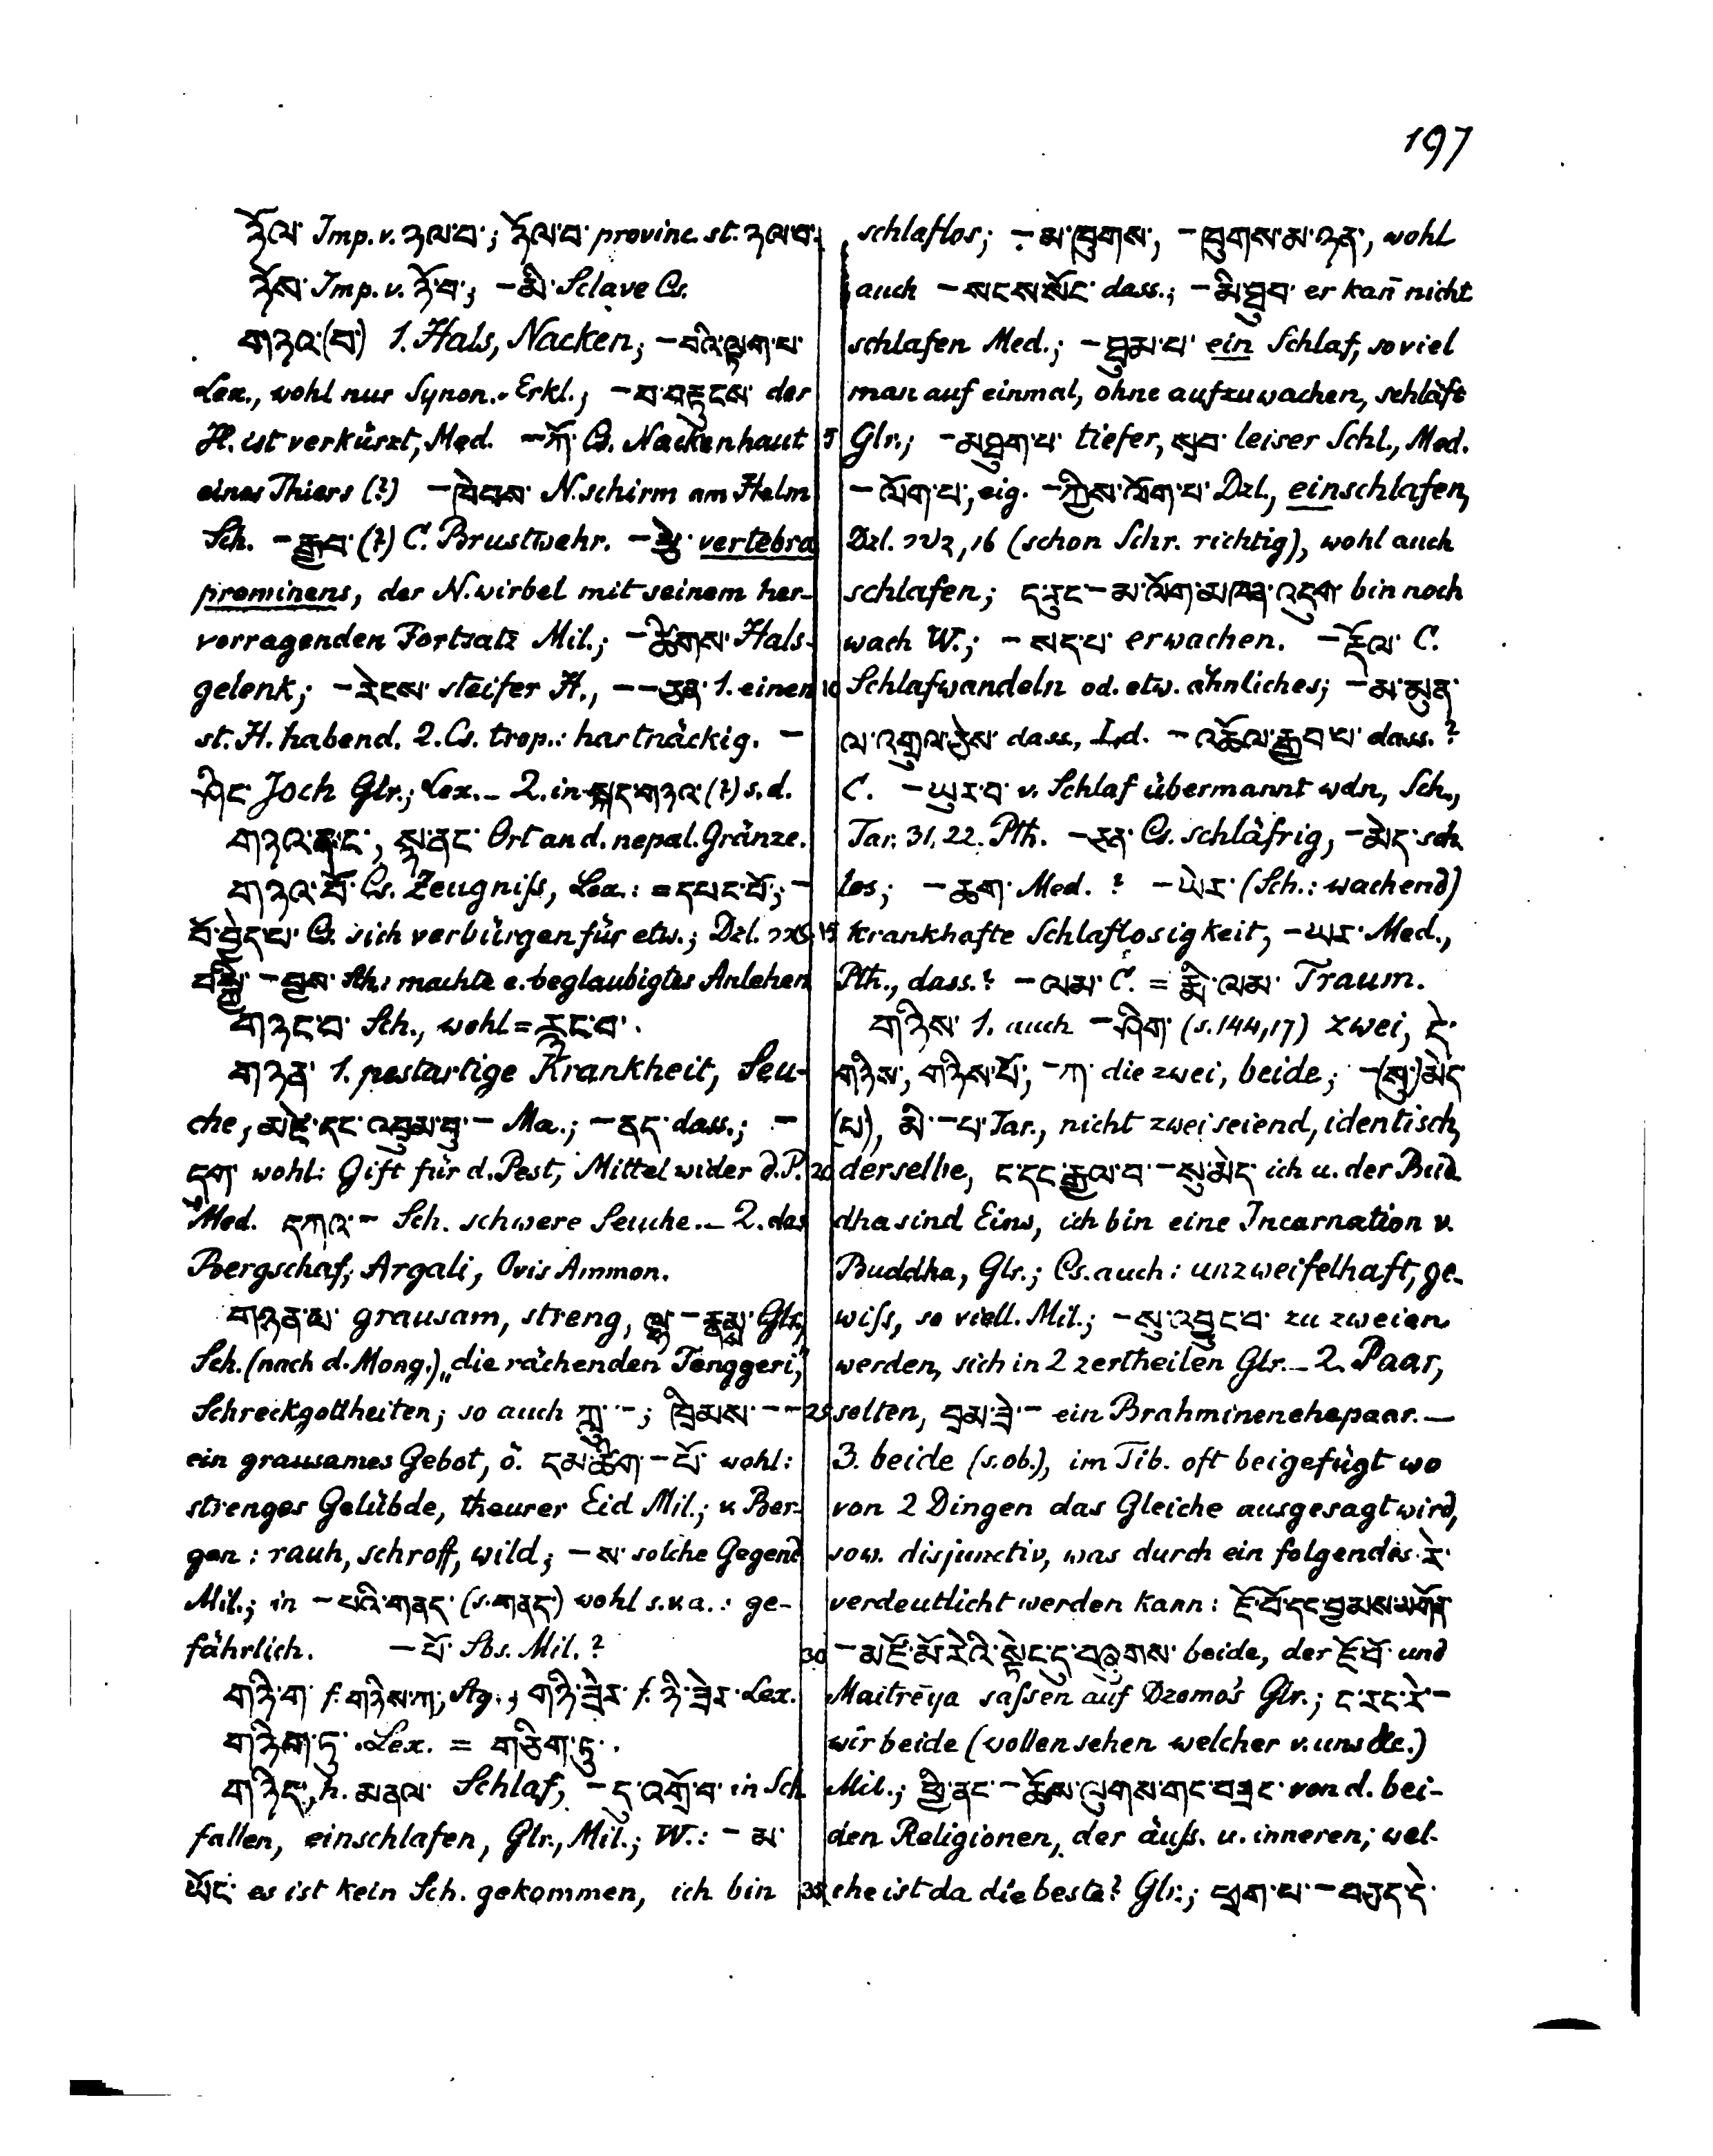 197
ཉོལ་ Imp. v. ཉལ་བ་; ཉོལ་བ་ provinc. st. ཉལ་བ་.
ཉོས་ Imp. v. ཉོ་བ་; –མི་ Sclave Cs.
གཉའ་(བ་) 1. Hals, Nacken; –བའི་ལྟག་པ་
Lex., wohl nur Synon.-Erkl.; –བ་བརྟུངས་ der
H. ist verkürzt, Med. –ཀོ་ Cs. Nackenhaut
eines Thiers (?) –ཁེབས་ N.schirm am Helm
Sch. –རྒྱབ་ (?) C. Brustwehr. – vertebra
prominens, der N.wirbel mit seinem her-
vorragenden Fortsatz Mil.; –ཚིགས་ Hals-
gelenk; –རེངས་ steifer H., ––ཅན་ 1. einen
st. H. habend. 2. Cs. trop.: hartnäckig. –
ཤིང་ Joch Glr.; Lex. – 2. in གཉའ་ (?) s.d.
གཉའ་ནང་, སྙ་ནང་ Ort an d. nepal. Gränze.
གཉའ་བོ་ Cs. Zeugniſs, Lex.: = དཔང་པོ་; –
བོ་བྱེད་པ་ Cs. sich verbürgen für etw.; Dzl.
–བྱས་ Sch.: machte e. beglaubigtes Anlehen
གཉང་བ་ Sch., wohl = རྙང་བ་.
གཉན་ 1. pestartige Krankheit, Seu-
che, མཛེ་དང་འབྲུམ་བུ་– Ma.; –ནད་ dass.; –
དུག་ wohl: Gift für d. Pest, Mittel wider d. P.
Med. དཀའ་– Sch. schwere Seuche. – 2. das
Bergschaf, Argali, Ovis Ammon.
གཉན་པ་ grausam, streng, ལྷ་–རྣམས་ Glr.,
Sch. (nach d. Mong.) „die rächenden Tenggeri,"
Schreckgottheiten; so auch ཀླུ་–; ཁྲིམས་––
ein grausames Gebot, ö. དམ་ཚིག་–པོ་ wohl:
strenges Gelübde, theurer Eid Mil.; v. Ber-
gen: rauh, schroff, wild; –ས་ solche Gegend
Mil.; in –པའི་གནད་ (s. གནད་) wohl s.v.a.: ge-
fährlich. –པོ་ Sbs. Mil. ?
གཉི་ག་ f. གཉིས་ཀ་; གཉི་ཟེར་ f. ཉི་ཟེར་ Lex.
གཉིག་ཏུ་ Lex. = གཅིག་ཏུ་.
གཉིད་, h. མནལ་ Schlaf, –དུ་འགྲོ་བ་ in Sch.
fallen, einschlafen, Glr., Mil.; W.: –མ་
ཡོང་ es ist kein Sch. gekommen, ich bin
schlaflos; –མ་ཁུགས་, –ཁུགས་མ་ཉན་, wohl
auch –སངས་སོང་ dass.; –མི་ཐུབ་ er kan̄ nicht
schlafen Med.; –ཐུམ་པ་ ein Schlaf, so viel
man auf einmal, ohne aufzuwachen, schläft
5 Glr.; –མཐུག་པ་ tiefer, སྲབ་ leiser Schl., Med.
–ལོག་པ་, eig. –ཀྱིས་ལོག་པ་ Dzl., einschlafen,
Dzl. ༢༧༢, 16 (schon Schr. richtig), wohl auch
schlafen; ད་རུང་–མ་ལོག་མཁན་འདུག་ bin noch
wach W.; –སད་པ་ erwachen. –རྡོལ་ C.
10 Schlafwandeln od. etw. ähnliches; –མ་མུན་
ལ་འགུལ་ཅེས་ dass., Ld. –འཆོལ་རྒྱབ་པ་ dass. ?
C. –ཡུར་བ་ v. Schlaf übermannt wdn, Sch.,
Tar. 31, 22. Pth. –ཅན་ Cs. schläfrig, –མེད་ sch.
los; –ཆག་ Med. ? –ཡེར་ (Sch.: wachend)
15 krankhafte Schlaflosigkeit, –ཡར་ Med.,
Pth., dass. ? –ལམ་ C. = རྨི་ལམ་ Traum.
གཉིས་ 1. auch –ཤིག་ (s. 144, 17) zwei, དེ་
གཉིས་, གཉིས་པོ་, –ཀ་ die zwei, beide; –(སུ་)མེད་
(པ), མི་–པ་ Tar., nicht zwei seiend, identisch,
20 derselbe, ང་དང་རྒྱལ་བ་–སུ་མེད་ ich u. der Bud-
dha sind Eins, ich bin eine Incarnation v.
Buddha, Glr.; Cs. auch: unzweifelhaft, ge-
wiſs, so viell. Mil.; –སུ་འབྱུང་བ་ zu zweien
werden, sich in 2 zertheilen Glr. – 2. Paar,
25 selten, བྲམ་ཟེ་– ein Brahminenehepaar. –
3. beide (s. ob.), im Tib. oft beigefügt wo
von 2 Dingen das Gleiche ausgesagt wird,
sow. disjunctiv, was durch ein folgendes རེ་
verdeutlicht werden kann: ཇོ་བོ་དང་བྱམས་མགོན་
30 –མཛོ་མོ་རེའི་སྟེང་དུ་བཞུགས་ beide, der ཇོ་བོ་ und
Maitrēya saſsen auf Dzomo's Glr.; ང་རང་རེ་–
wir beide (wollen sehen welcher v. uns &c.)
Mil.; ཕྱི་ནང་–ཆོས་ལུགས་གང་བཟང་ von d. bei-
den Religionen, der äuſs. u. inneren; wel-
35 che ist da die beste? Glr.; ཕྲག་པ་–བརྒྱད་དེ་